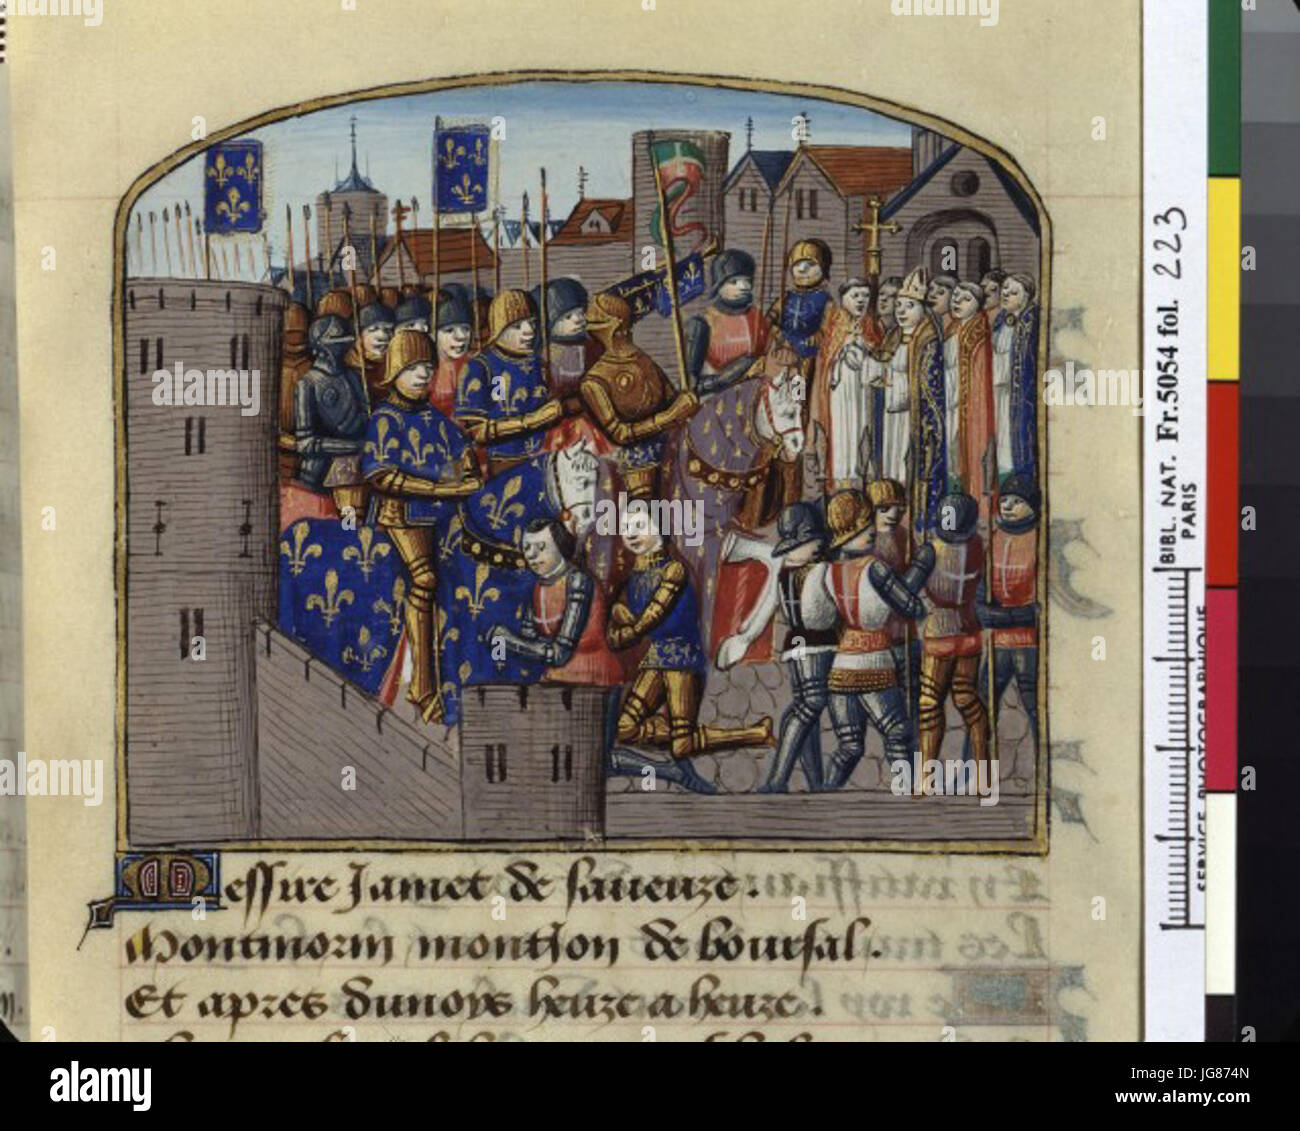 Messire Jamet de saueuze.
Montmorin montson de boursal.
Et apres dunoys heuze a heuze.
BIBL. NAT. Fr.5054 fol. 223
PARIS
SERVICE PHOTOGRAPHIQUE
alamy
Image ID: JG874N
www.alamy.com